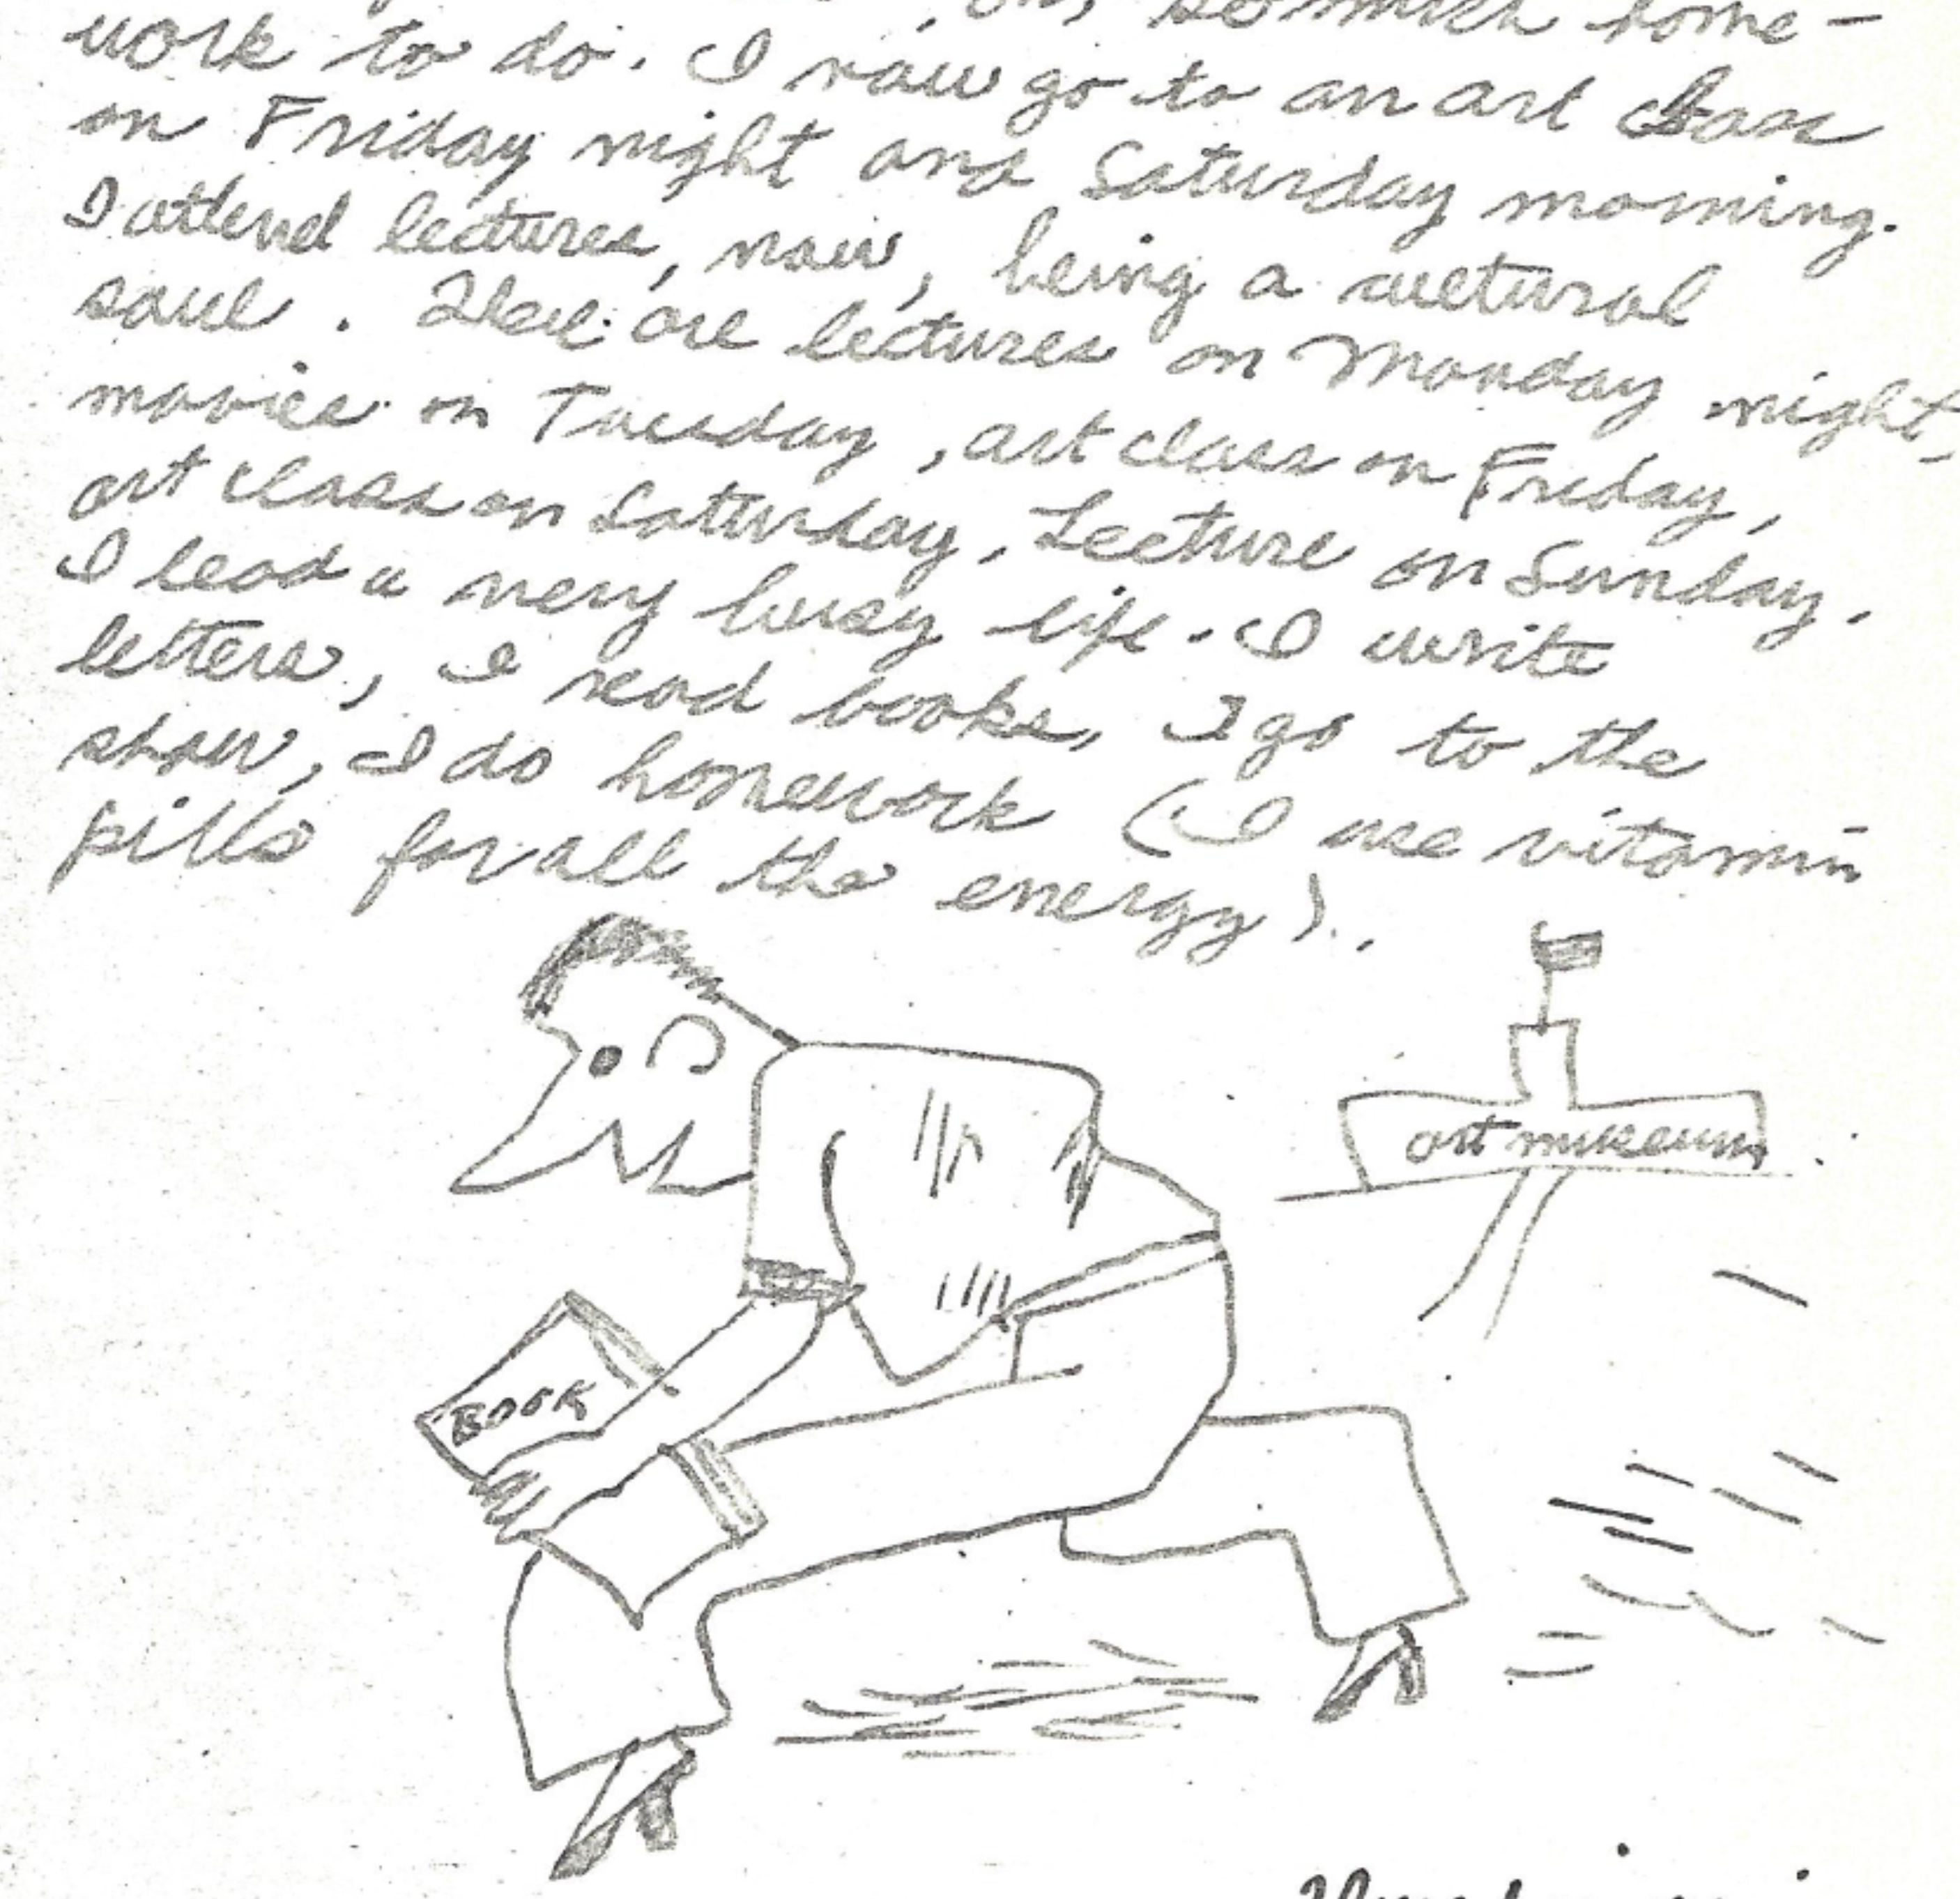 so much home-
work to do. I now go to an art class
on Friday night and Saturday morning.
I attend lectures, now, being a cultural
soul. There are lectures on Monday night,
movies on Tuesday, art class on Friday,
art class on Saturday, Lecture on Sunday.
I lead a very busy life. I write
letters, I read books, I go to the
show, I do homework (I use vitamin
pills for all the energy).
art museum
BOOK